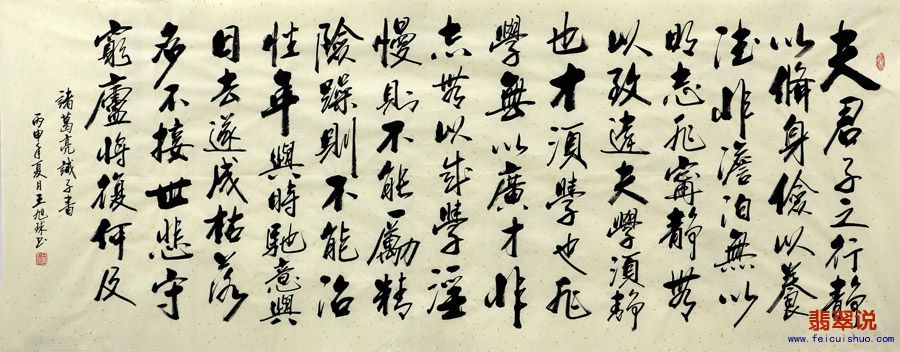 夫君子之行靜
以脩身儉以養
德非澹泊無以
明志非寧靜無
以致遠夫學須静
也才須學也非
學無以廣才非
志無以成學淫
慢則不能勵精
險躁則不能治
性年與時馳意與
日去遂成枯落
多不接世悲守
窮廬將復何及
諸葛亮誡子書
丙申年夏月王旭书
翡翠说
www.feicuishuo.com